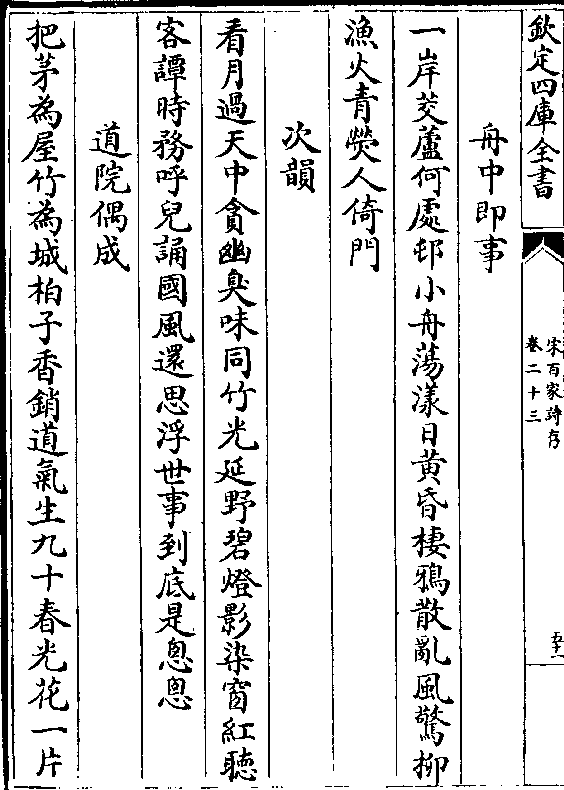 欽定四庫全書
宋百家詩存
卷二十三
舟中即事
一岸茭蘆何處邨小舟蕩漾日黃昏棲鴉散亂風驚柳
漁火青熒人倚門
次韻
看月過天中貪幽臭味同竹光延野碧燈影染窗紅聽
客譚時務呼兒誦國風還思浮世事到底是悤悤
道院偶成
把茅為屋竹為城柏子香銷道氣生九十春光花一片